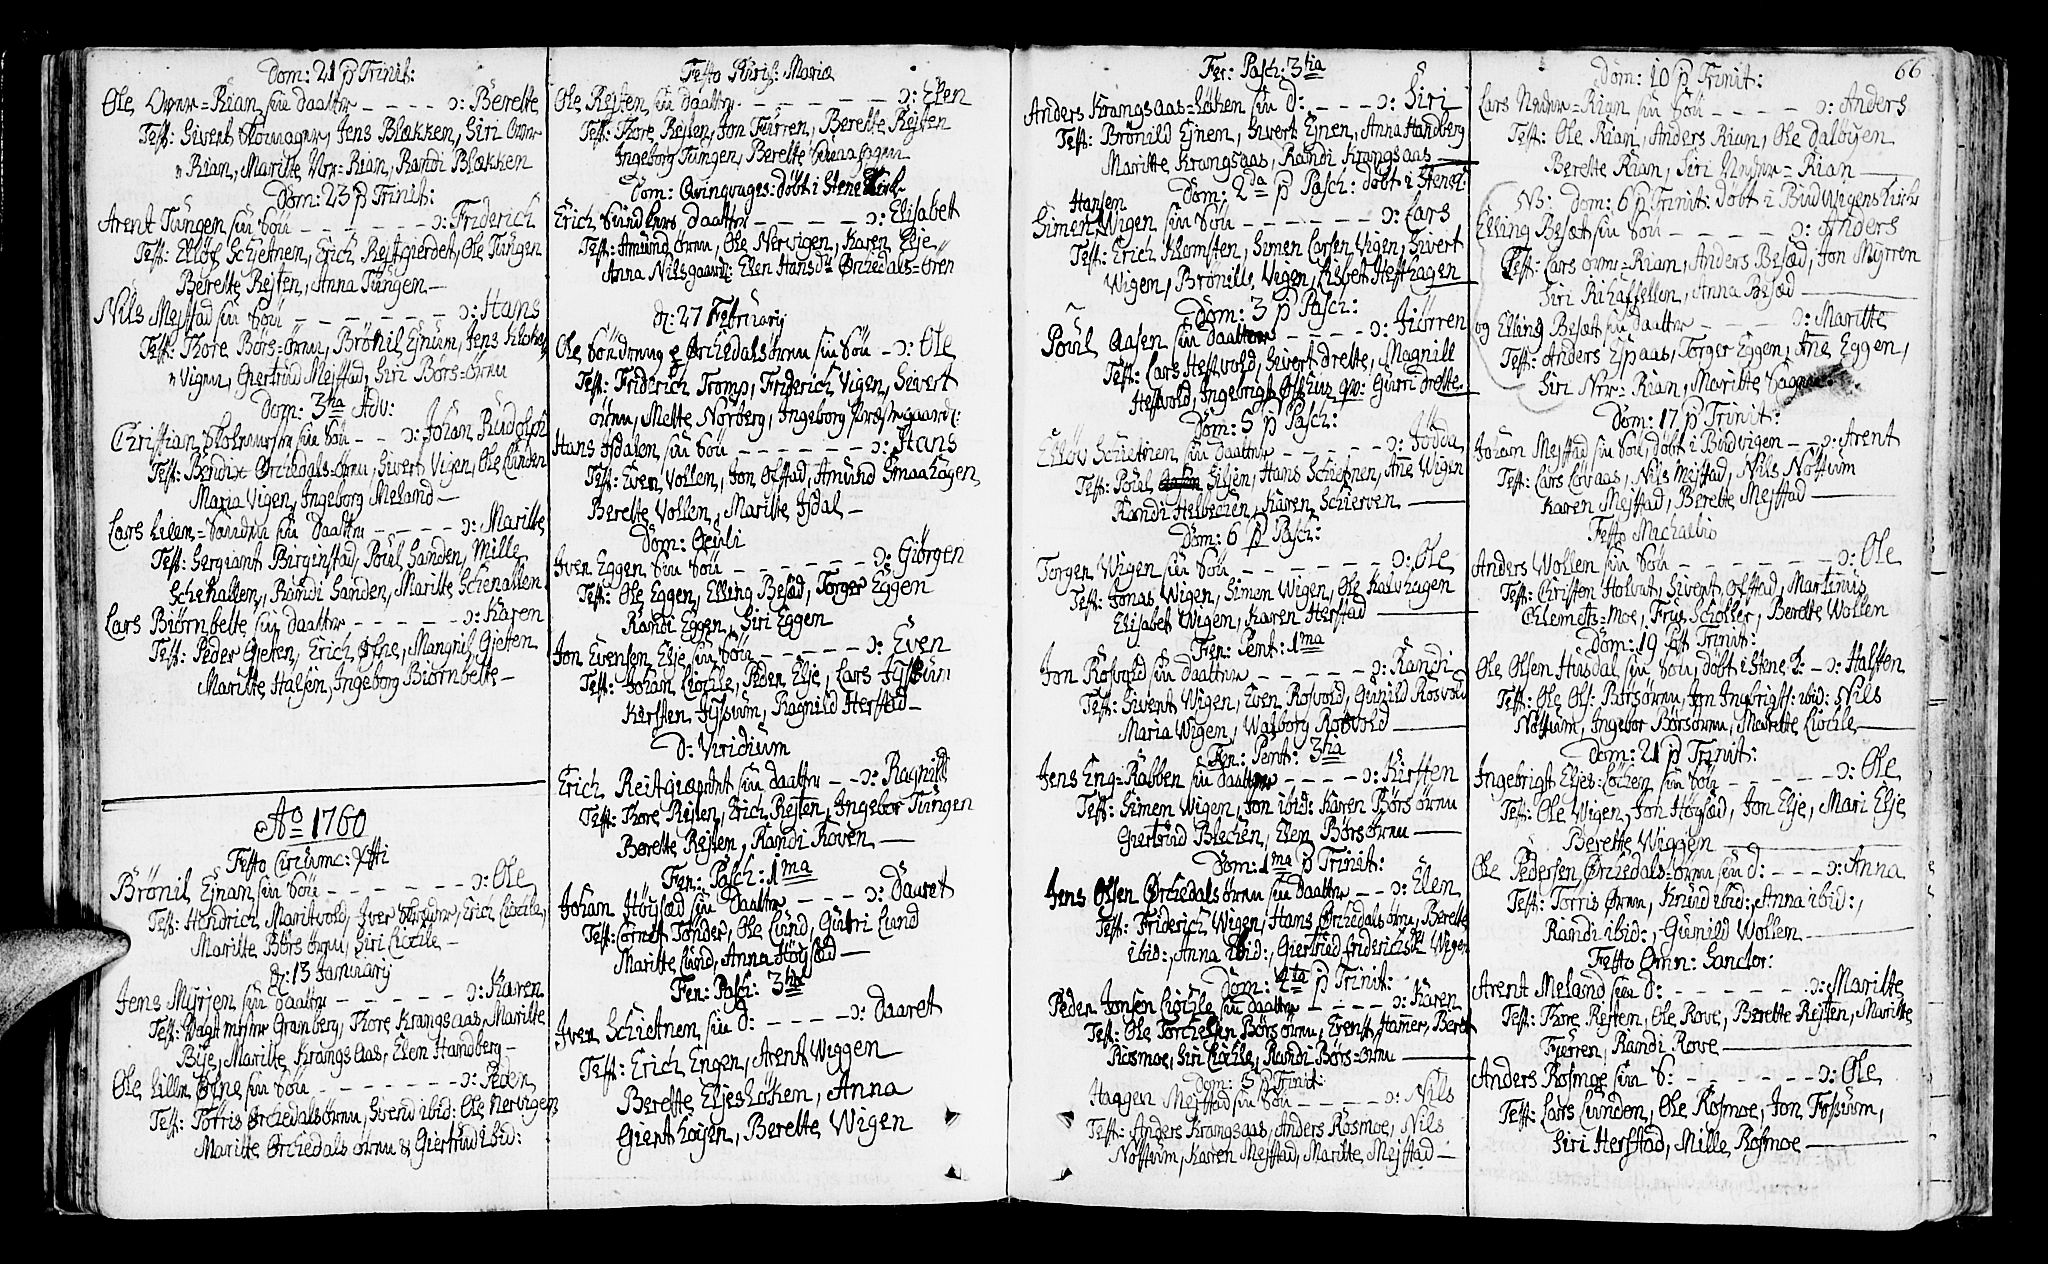 Dom: 21 p Trinit:
Ole Owr=Rian sin daatter - - - - ɔ: Berette
Test: Sivert Skomager, Jens Blækken, Siri Owr
Rian, Maritte Nrr=Rian, Randi Blækken
Dom: 23 p Trinit:
Arent Tungen sin Sön - - - - - ɔ: Friderich
Test: Elløf Schietnen, Erich Reitgierdet, Ole Tungen
Berette Rejten, Anna Tungen
Nils Mejstad sin Sön - - - - - ɔ: Hans
Test: Thore Børs-ørnn, Brönil Ejnum, Jens
Vigen, Giertrud Mejstad, Siri Børs=örnn
Dom: 3tia Adv:
Christian sin Sön - - ɔ: Johan Rudolph
Test: Bendix Orchedals-örnn, Sivert Vigen, Ole Lunden
Maria Vigen, Ingeborg Meland
Lars Lillen= sin daatter - - - - ɔ: Maritte
Test: Sergiant Birginstad, Poul Sanden, Mille
Schenallen, Randi Sanden, Maritte Schenallen
Lars Biørnbette sin daatter - - - - ɔ: Karen
Test: Peder Gieten, Erich Ofne, Mangnil Gieten
Maritte Halsen, Ingeborg Biørnbette
Ao 1760
Festo Circumc: Xsti
Brönil Ejnan sin Sön - - - - - ɔ: Ole
Test: Hendrich Maritvold, Iver, Erich Liøchle,
Maritte Børsörnn, Siri Liøchle
D: 13 Januarij
Jens Myrjen sin daatter - - - - ɔ: Karen
Test: Wagtmester Granberg, Thore Krangsaas, Maritte
Bye, Maritte Krangsaas, Elen Handberg
Ole Lillen Ofne sin Sön - - - - - ɔ: Peder
Test: Torris Orchedalsörnn, Svend ibid: Ole Nervigen
Maritte Orchedalsörnn & Giertrud ibid:
Festo Purif: Mariæ
Ole Rejten sin daatter - - - - - - ɔ: Elen
Test: Thore Rejten, Jon Fürren, Berette Rejten
Ingeborg Tungen, Berette Smaahagen
Dom: Qvinqvages: döbt i Stene Kirk
Erich Svindhus daatter - - - - - ɔ: Elisabet
Test: Amund örnn, Ole Nervigen, Karen Elje
Anna Nilsgaard: Elen Hansdr Orchedals-ören
D: 27 Februarij
Ole Söndrung p Orchedalsörnn sin Sön - ɔ: Ole
Test: Friderich Tromp, Friderich Vigen, Sivert
örnn, Mette Norberg, Ingeborg Præstegaard:
Hans Isdalen sin Sön - - - - - - ɔ: Hans
Test: Even Vollen, Jon Ofstad, Amund Smaahagen
Berette Vollen, Maritte Isdal
Dom: Oculi
Iver Eggen sin Sön - - - - - ɔ: Giørgen
Test: Ole Eggen, Elling Besæd, Torger Eggen
Randi Eggen, Siri Eggen
Jon Evensen Elje sin Sön - - - - - ɔ: Even
Test: Johan Liøchle, Peder Elje, Lars Jyssum
Kirsten Jyssum, Ragnild Herstad
D: Viridium
Erich Reitgiærdet sin daatter - - ɔ: Ragnild
Test: Thore Rejten, Erich Rejten, Ingebor Tungen
Berette Rejten, Randi Roven
Fer: Pasch: 1ma
Johan Høysæd sin daatter - - - ɔ: Dauret
Test: Cornet Tønder, Ole Lund, Guri Lund
Maritte Lund, Anna Høysæd
Fer: Pasch: 3tia
Iver Schietnen sin d: - - - - ɔ: Daaret
Test: Erich Engen, Arent Wiggen
Berette Eljesløken, Anna
Gienthøyen, Berette Wigen
Fer: Pasch: 3tia
Anders Krangsaas=Løken sin d: - - - ɔ: Siri
Test: Brönild Ejnen, Sivert Ejnen, Anna Handberg
Maritte Krangsaas, Randi Krangsaas
Dom: 2da p Pasch: döbt i Stene K:
Hansen
Simen Wigen sin Sön - - - - - - ɔ: Lars
Test: Erich Klomsten, Simen Larsen Vigen, Sivert
Wigen, Brönille Vigen, Lisbet Hefthagen
Dom: 3 p Pasch:
Poul Aasen sin daatter - - - - - ɔ: Jörren
Test: Lars Heftvold, Sivert Drette, Magnill
Heftvold, Ingebrigt Ofthus qv: Gurri Drette
Dom: 5 p Pasch:
Elløv Schietnen sin daatter - - - - - ɔ: Jødda
Test: Poul Siljen, Hans Schietnen, Ane Wigen
Randi Helbechen, Karen Schierven
Dom: 6 p Pasch:
Torger Wigen sin Sön - - - - - - ɔ: Ole
Test: Jonas Wigen, Simen Wigen, Ole Kalvhagen
Elisabet Wigen, Karen Herstad
Fer: Pent: 1ma
Jon Rosvold sin daatter - - - - - ɔ: Randi
Test: Sivert Wigen, Even Rosvold, Gunild Rosvold
Maria Wigen, Walborg Rosvold
Fer: Pent: 3tia
Jens Eng=Rabben sin daatter - - - - ɔ: Kirsten
Test: Simen Wigen, Jon ibid: Karen Børsörnn
Giertrud Blechen, Elen Børsörnn
Dom: 1ma p Trinit:
Jens Olsen Orchedalsörnn sin daatter - - ɔ: Elen
Test: Friderich Wigen, Hans Orchedalsörnn, Berette
ibid:, Anna ibid:, Giertrud Friderichsdr Wigen
Dom: 4ta p Trinit:
Peder Jonsen Liøchle sin daatter - - - - ɔ: Karen
Test: Ole Torchelsen Børsörnn, Erenst Hamer, Beret
Rosmoe, Siri Liøchle, Randi Børs=örnn
Dom: 5 p Trinit:
Haagen Mejstad sin Sön - - - - - ɔ: Nils
Test: Anders Krangsaas, Anders Rosmoe, Nils
Nossum, Karen Mejstad, Maritte Mejstad
66
Dom: 10 p Trinit:
Lars Nedre=Rian sin Sön - - - - - ɔ: Anders
Test: Ole Rian, Anders Rian, Ole Dalbyen
Berette Rian, Siri Nedre=Rian
NB: Dom: 6 p Trinit: döbt i Budwigens Kirke
Elling Besæt sin Sön - - - - - ɔ: Anders
Test: Lars owr=Rian, Anders Besæd, Jon Myrren
Siri Rihasfellen, Anna Besæd
og Elling Besæt sin daatter - - - - ɔ: Maritte
Test: Anders Espaas, Torger Eggen, Ane Eggen,
Siri Nrr=Rian, Maritte
Dom: 17 p Trinit:
Johan Mejstad sin Sön, döbt i Budvigen - - ɔ: Arent
Test: Lars Lovaas, Nils Mejstad, Nils Nossum
Karen Mejstad, Berette Mejstad
Festo Michaelis
Anders Wollen sin Sön - - - - - - ɔ: Ole
Test: Christen Holvat, Sivert Ofstad, Martinus
Clemets-moe, Frue Schøller, Berette Wollen
Dom: 19 post Trinit:
Ole Olsen Husdal sin Sön, döbt i Stene K: - ɔ: Halsten
Test: Ole Ols: Børsörnn, Jon Ingebrigt: ibid: Nils
Nossum, Ingebor Børsörnn, Marette Liøchle
Dom: 21 p Trinit:
Ingebrigt Eljes-Løchen sin Sön - - - - - ɔ: Ole
Test: Ole Wigen, Jon Høysæd, Jon Elje, Mari Elje
Berette Wiggen
Ole Pedersen Orchedals-örnn sin d: - - - ɔ: Anna
Test: Torris Ørnn, Knud ibid:, Anna ibid:,
Randi ibid:, Gunild Wollen
Festo Omn: Sanctor:
Arent Meland sin d: - - - - - - ɔ: Maritte
Test: Thore Rejten, Ole Rove, Berette Rejten, Maritte
Fürren, Randi Rove
Anders Rosmoe sin S: - - - - - - ɔ: Ole
Test: Lars Lunden, Ole Rosmoe, Jon Fossum,
Siri Herstad, Mille Rosmoe